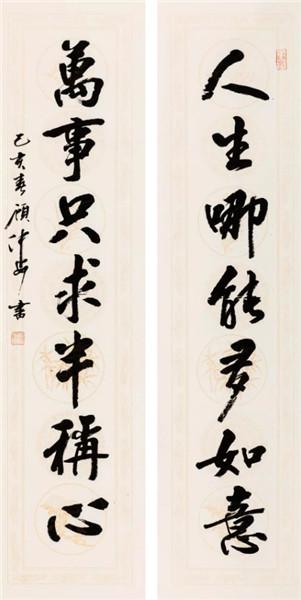 人生哪能多如意
萬事只求半稱心
己亥春顧仲安書